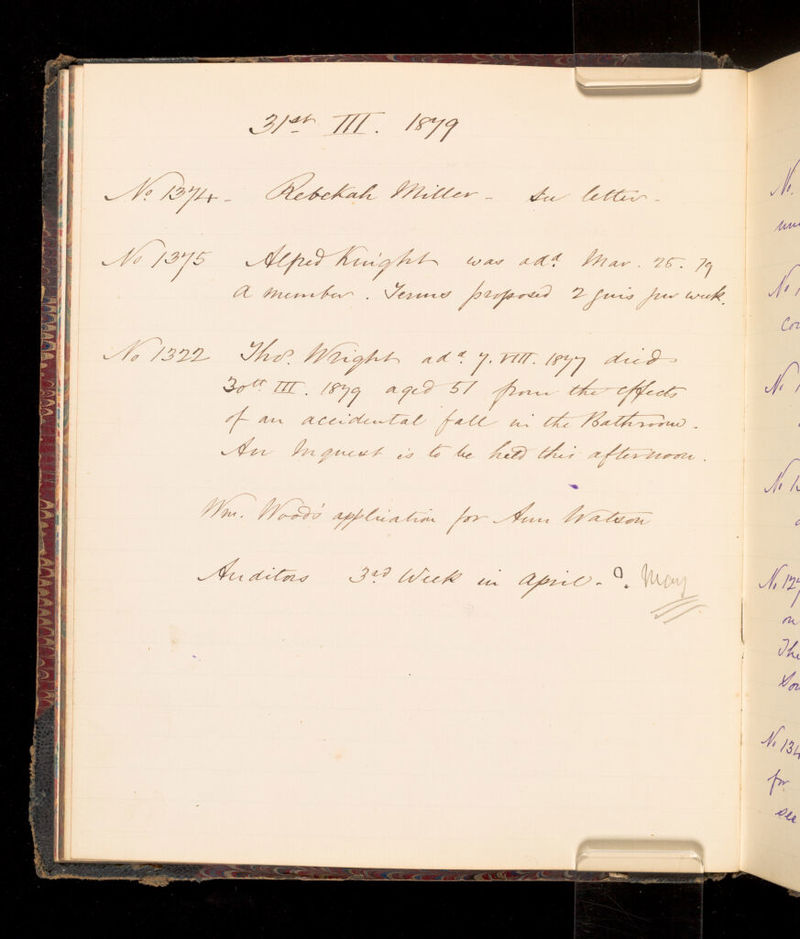 31st III. 1879
No 1374 - Rebekah Miller - See letter -
No 1375 Alfred Knight was add. Mar. 25. 79
a member. Terms proposed 2 guis per week.
No 1322 Thos. Wright add. 7. VIII. 1877 died
30th III. 1879 aged 51 from the effects
of an accidental fall in the Bathroom.
An Inquest is to be held this afternoon.
Wm. Wood's application for Ann Watson
Auditors 3rd Week in April - ?. May
No.
No 1
No 1
No 1
No 127
on
The
No 134
for
see